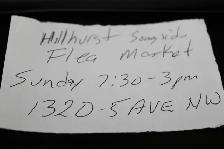 Hillhurst Sunnyside
Flea Market
Sunday 7:30-3pm
1320-5 AVE NW